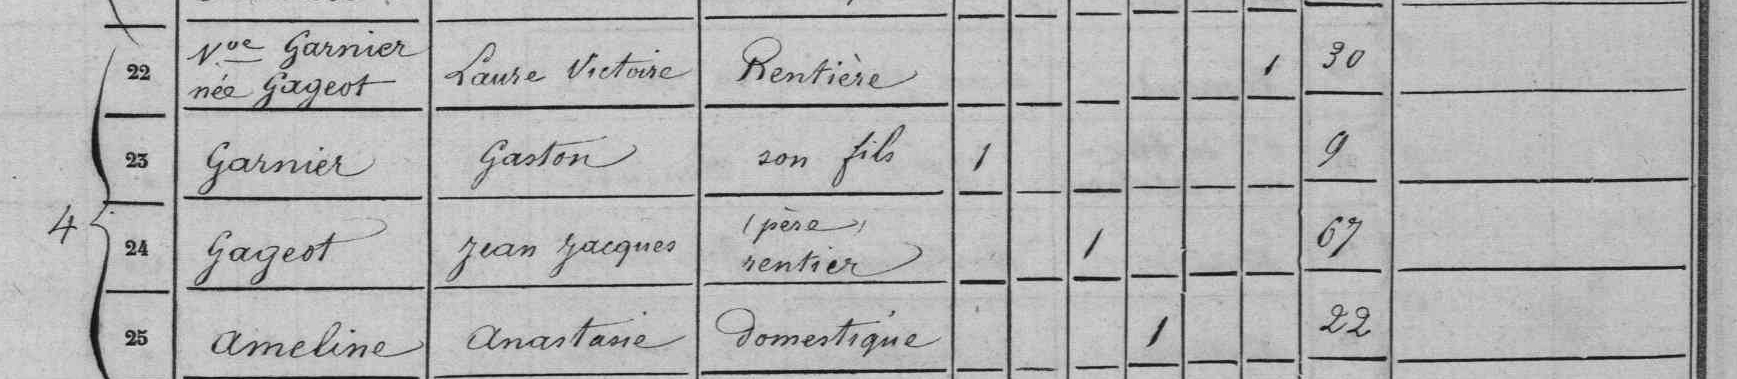 22 Vve Garnier née Gageot Laure Victoire Rentière 1 30
23 Garnier Gaston son fils 1 9
4
24 Gageot Jean Jacques (père) rentier 1 67
25 Ameline Anastasie Domestique 1 22